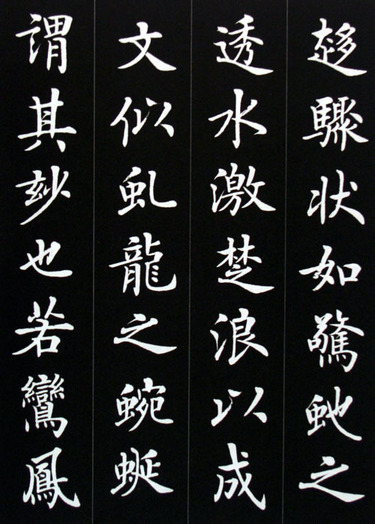 趍驟状如驚虵之
透水激楚浪以成
文似虬龍之蜿蜒
謂其玅也若鸞鳳